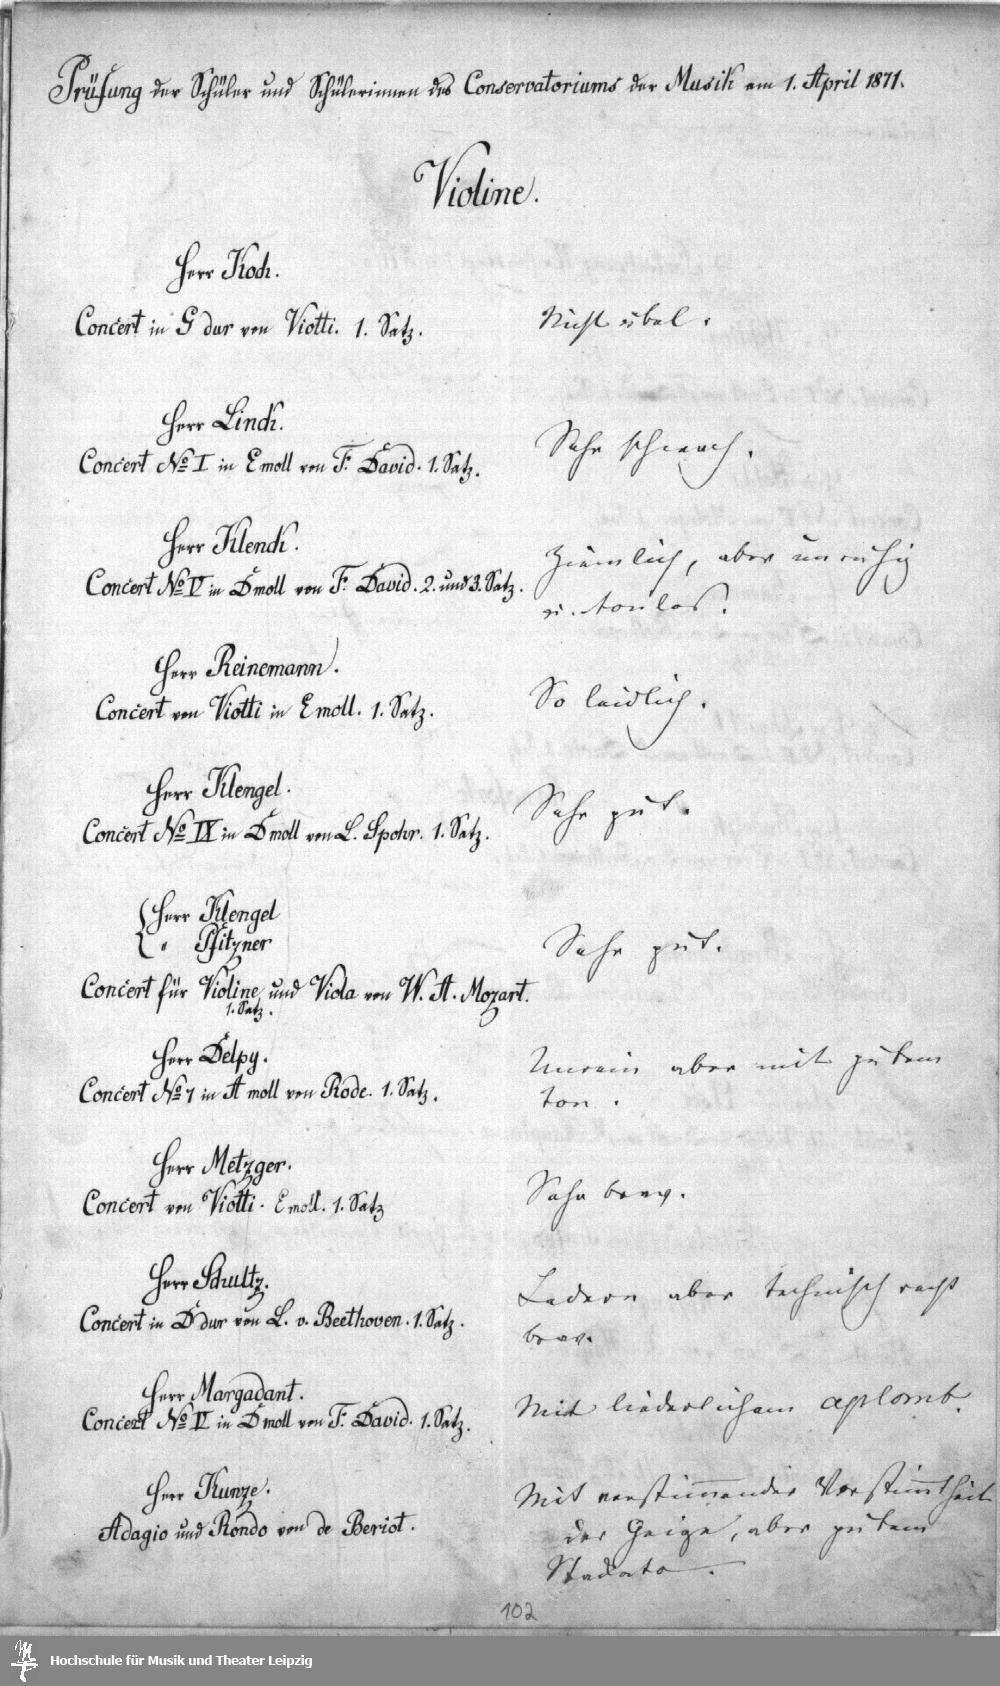 Prüfung der Schüler und Schülerinnen des Conservatoriums der Musik am 1. April 1871.
Violine.
Herr Koch.
Concert in G dur von Viotti. 1. Satz.
Nicht übel.
Herr Linck.
Concert No I in E moll von F. David. 1. Satz.
Sehr schwach.
Herr Klenck.
Concert No V in D moll von F. David. 2. und 3. Satz.
Ziemlich, aber unruhig
u. tonlos.
Herr Reinemann.
Concert von Viotti in E moll. 1. Satz.
So leidlich.
Herr Klengel.
Concert No IX in D moll von L. Spohr. 1. Satz.
Sehr gut.
Herr Klengel
" Pfitzner
Concert für Violine und Viola von W. A. Mozart.
1. Satz.
Sehr gut.
Herr Delpy.
Concert No 7 in A moll von Rode. 1. Satz.
Unrein aber mit gutem
Ton.
Herr Metzger.
Concert von Viotti. E moll. 1. Satz
Sehr brav.
Herr Schultz.
Concert in D dur von L. v. Beethoven. 1. Satz.
Ledern aber technisch recht
brav.
Herr Margadant.
Concert No IV in D moll von F. David. 1. Satz.
Mit liederlichem aplomb.
Herr Kunze.
Adagio und Rondo von de Beriot.
Mit verstimmender Verstimmtheit
der Geige, aber gutem
Stackato.
102
Hochschule für Musik und Theater Leipzig